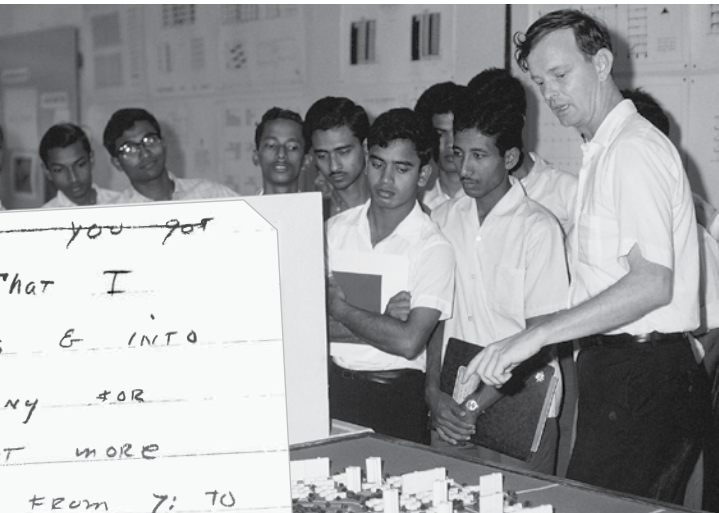 you got
That I
& INTO
NY FOR
T MORE
FROM 7: TO